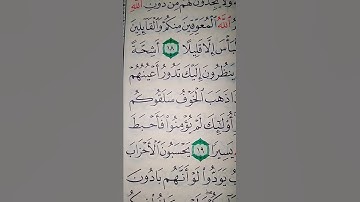 ولا يجدون لهم من دون الله
الله المعوقين منكم والقائلين
البأس إلا قليلا ١٨ أشحة
ينظرون إليك تدور أعينهم
ذا ذهب الخوف سلقوكم
أولئك لم يؤمنوا فأحبط
يسيرا ١٩ يحسبون الأحزاب
يودوا لو أنهم بادون